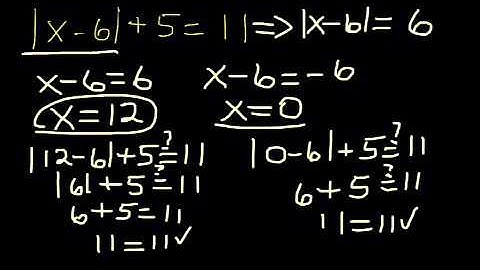 |x-6|+5=11⇒|x-6|=6
x-6=6
x=12
|12-6|+5≟11
|6|+5≟11
6+5=11
11=11✓
x-6=-6
x=0
|0-6|+5≟11
6+5≟11
11=11✓